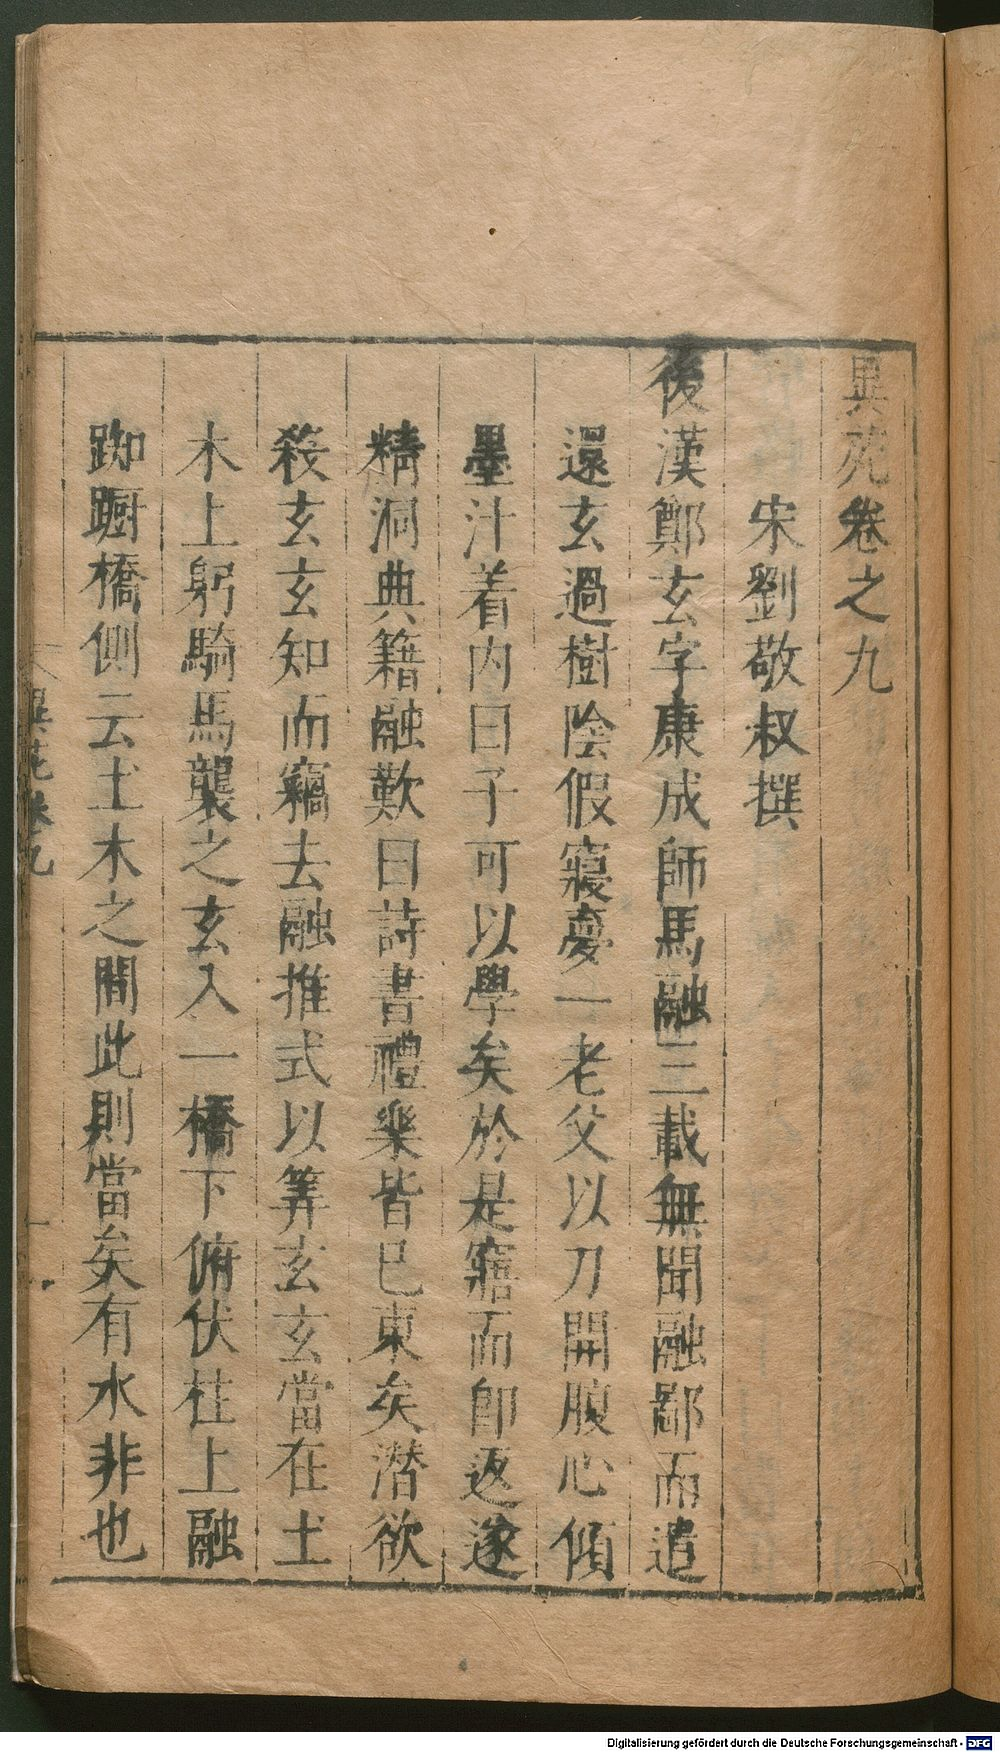 異苑卷之九
宋劉敬叔撰
後漢鄭玄字康成師馬融三載無聞融鄙而遣
還玄過樹陰假寢夢一老父以刀開腹心傾
墨汁着内曰子可以學矣於是寤而卽返遂
精洞典籍融歎曰詩書禮樂皆已東矣潛欲
殺玄玄知而竊去融推式以筭玄玄當在土
木上躬騎馬襲之玄入一橋下俯伏柱上融
踟蹰橋側云土木之間此則當矣有水非也
異苑卷九
一
Digitalisierung gefördert durch die Deutsche Forschungsgemeinschaft - DFG